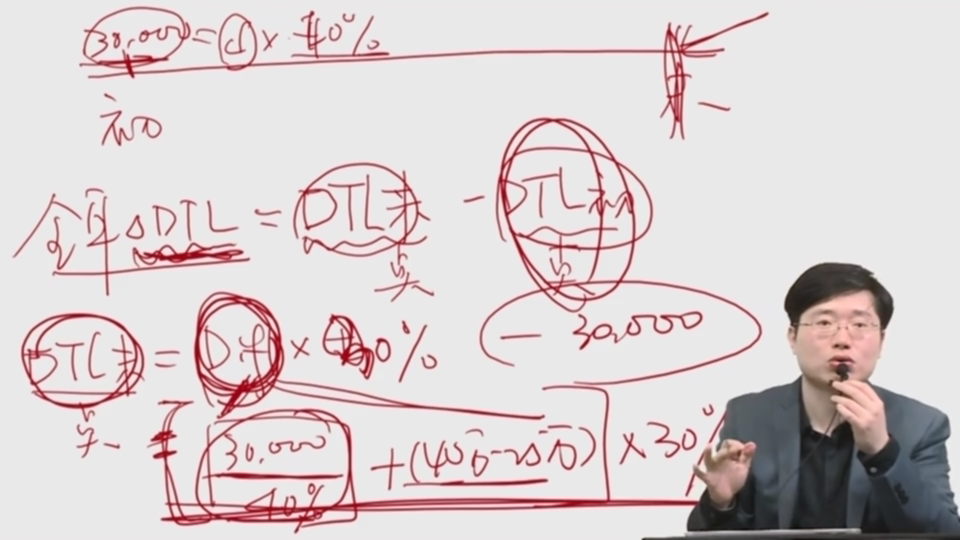 30,000 = ① × 40%
初
全年△DTL = DTL末 - DTL初
实 实
- 30,000
DTL末 = Diff × 30%
实
[30,000/40% + (40万-20万)] × 30%